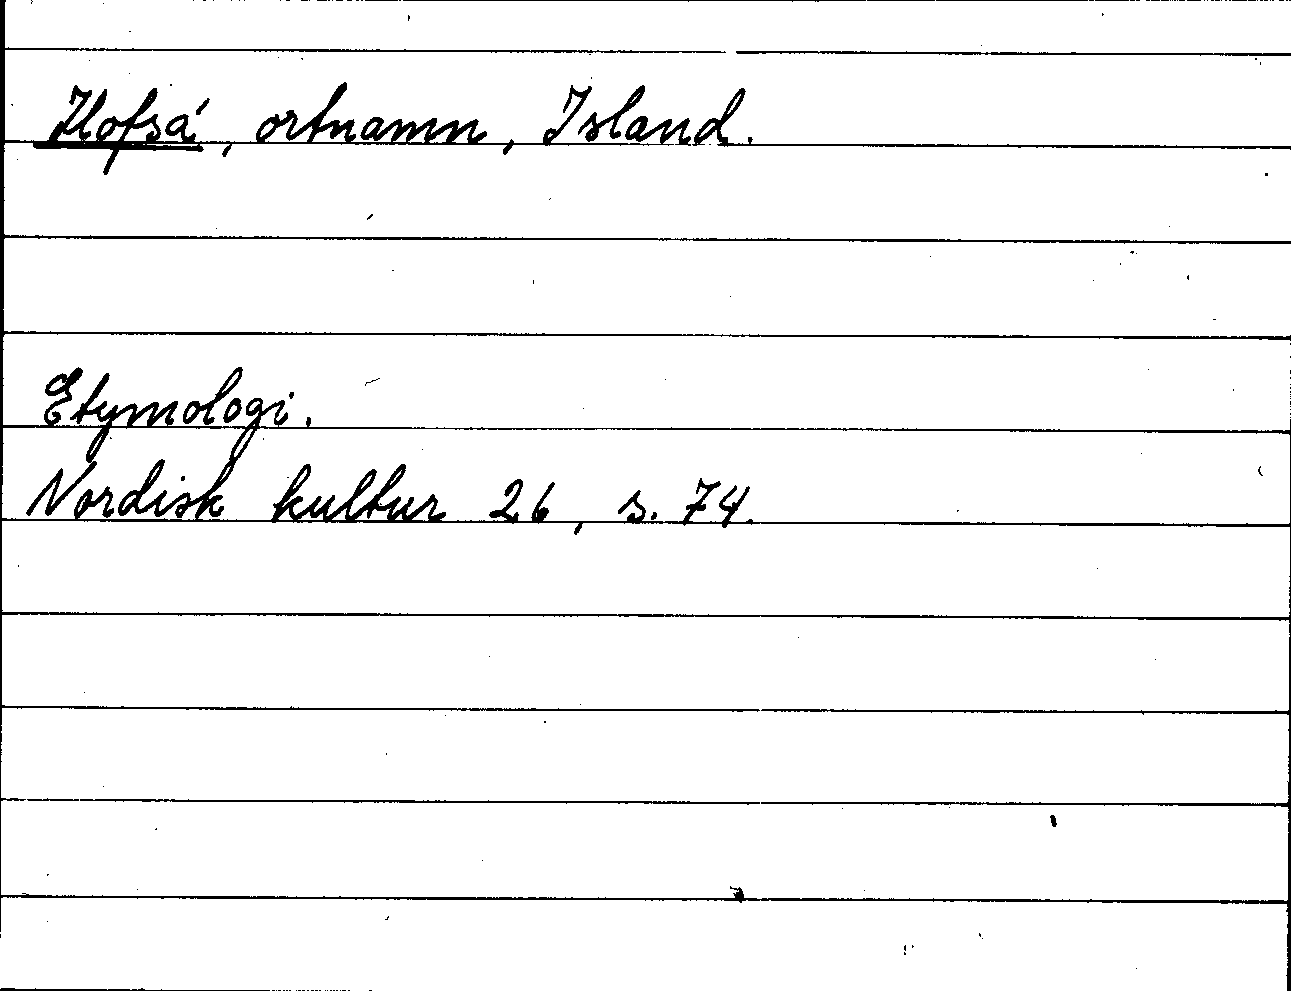 Hofsá, ortnamn, Island.
Etymologi.
Nordisk kultur 26, s. 74.